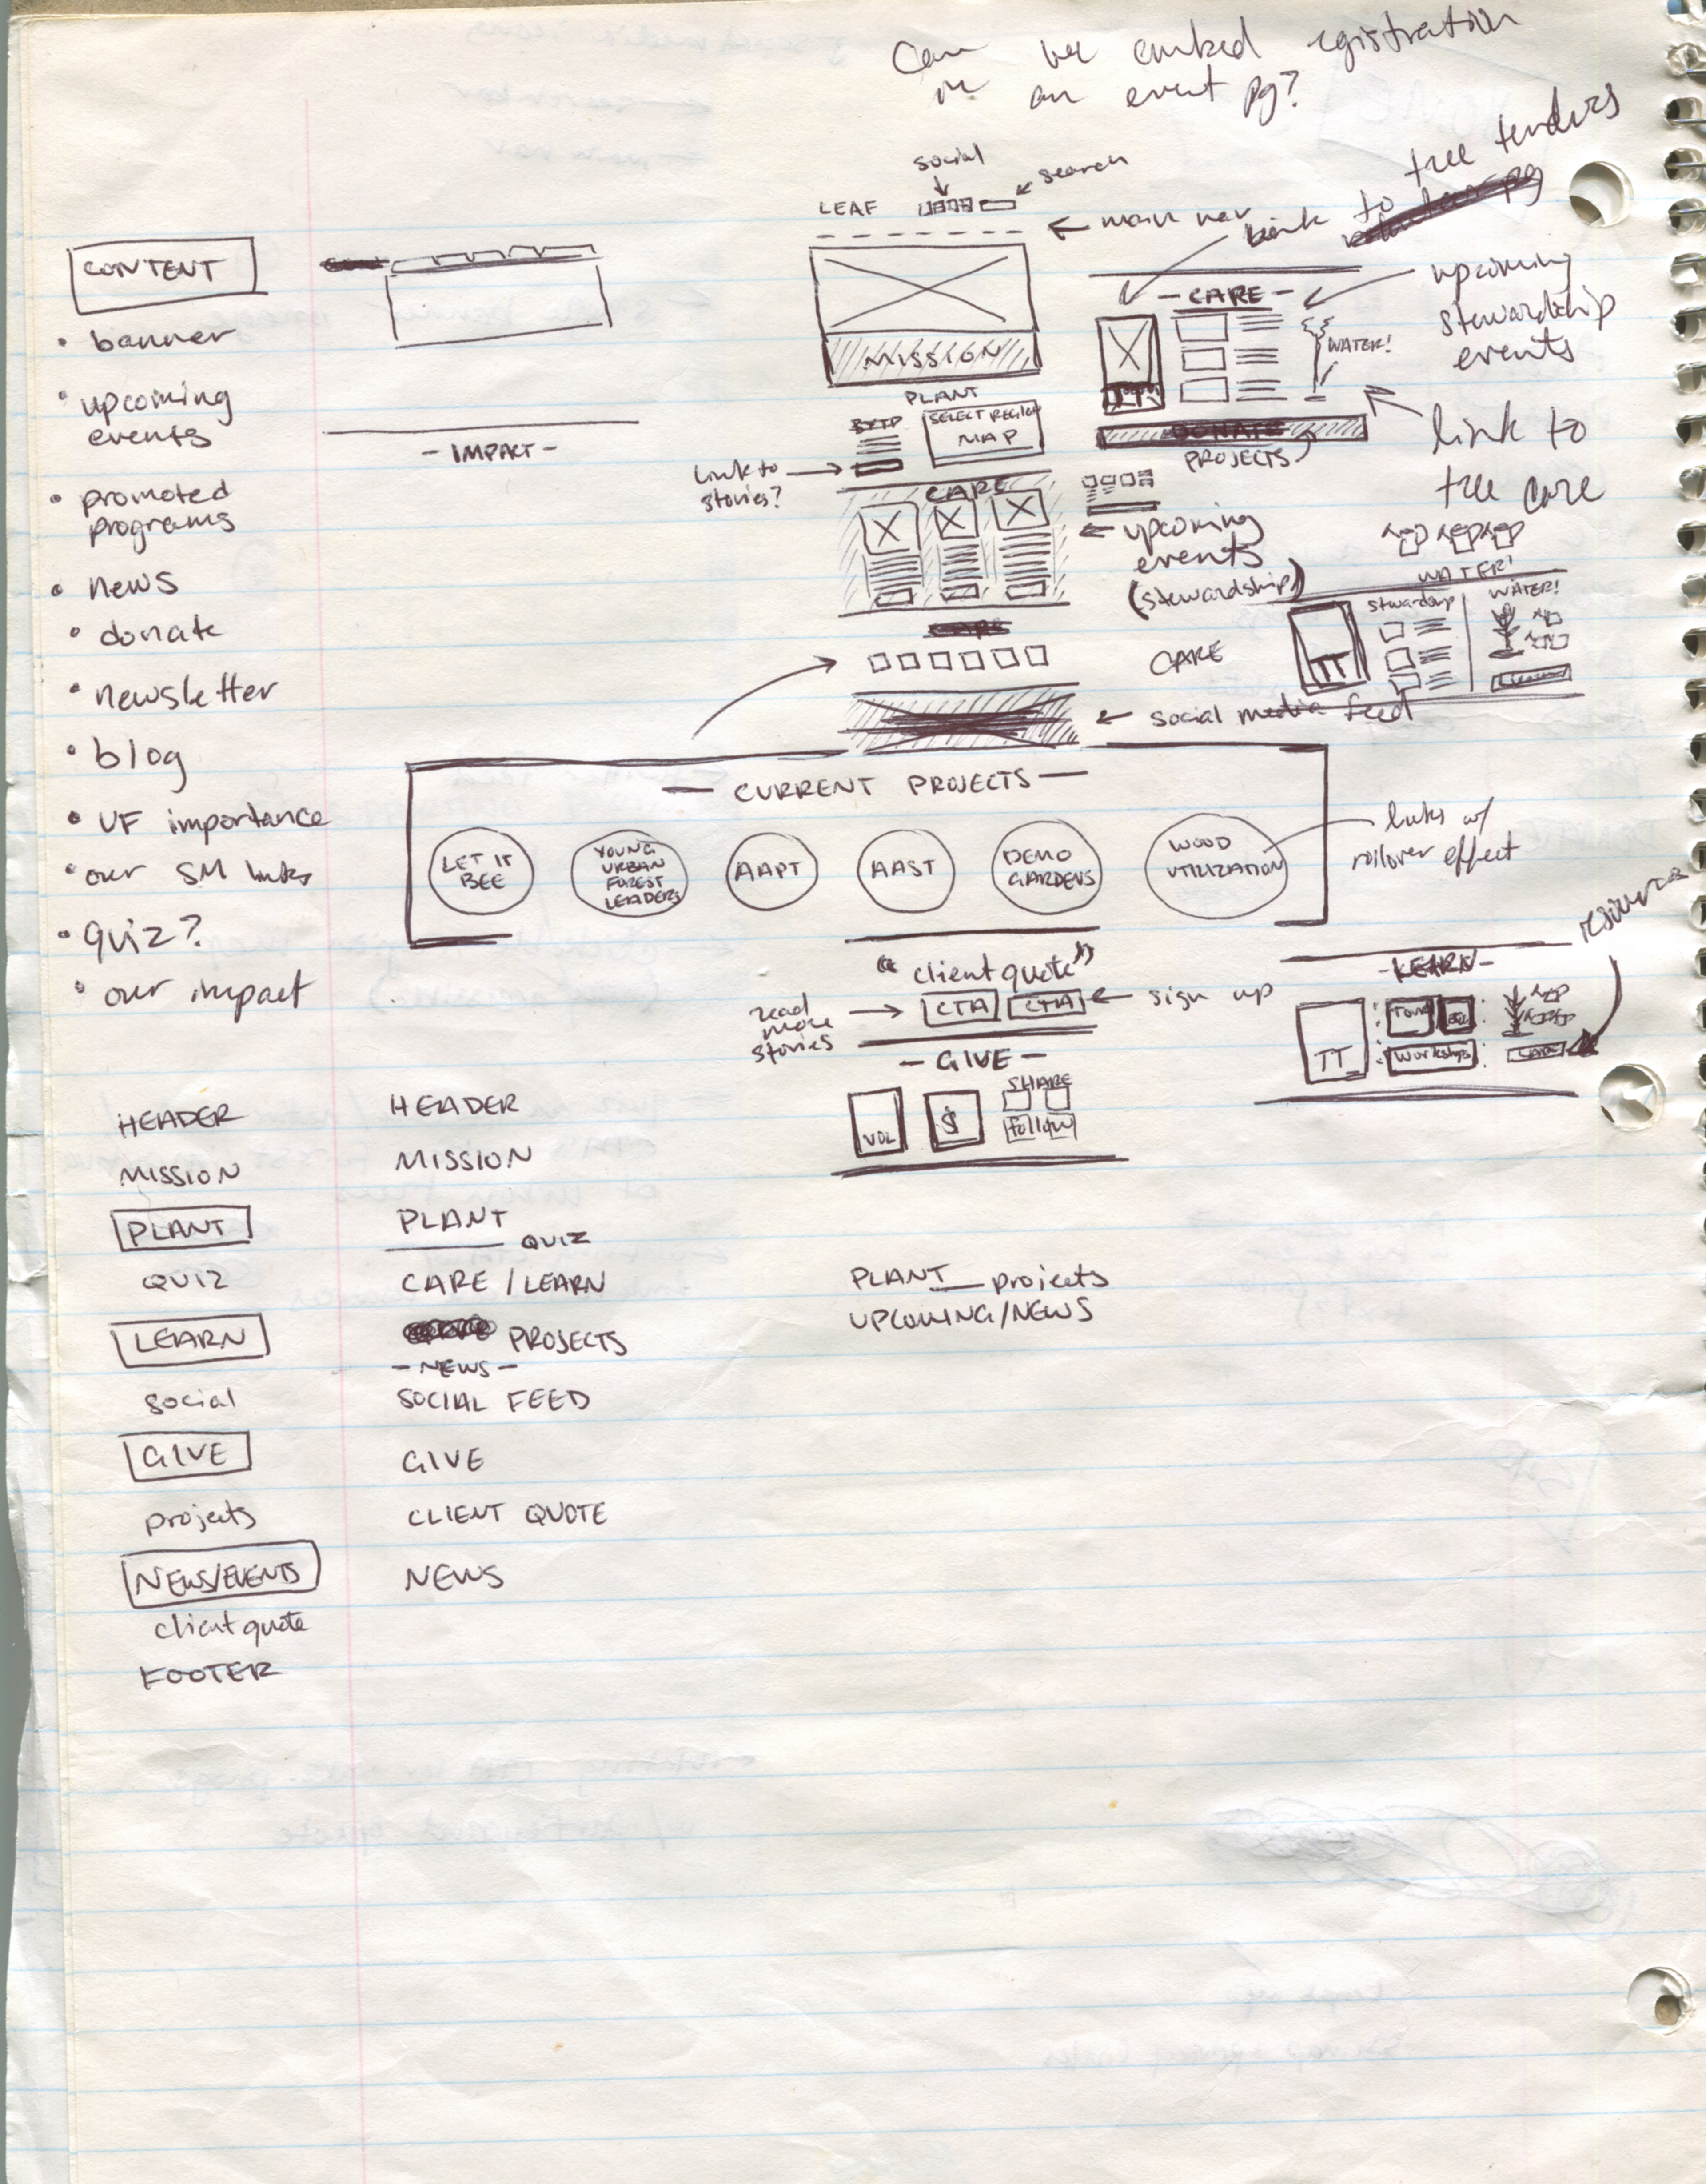 Can we embed registration
in an event pg?
social
search
LEAF
main nav
link to tree tenders
CONTENT
• banner
• upcoming
events
• promoted
programs
• news
• donate
• newsletter
• blog
• UF importance
• our SM links
• quiz?
• our impact
- IMPACT -
MISSION
PLANT
BYTP
SELECT REGION
MAP
link to
stories?
CARE
upcoming
events
(stewardship)
- CARE -
WATER!
TT
DONATE
PROJECTS
upcoming
stewardship
events
link to
tree care
WATER!
stewardship
WATER!
TT
CARE
social media feed
— CURRENT PROJECTS —
LET IT
BEE
YOUNG
URBAN
FOREST
LEADERS
AAPT
AAST
DEMO
GARDENS
WOOD
UTILIZATION
links w/
rollover effect
"client quote"
CTA CTA
read
more
stories
sign up
- GIVE -
VOL
$
SHARE
follow
resources
- LEARN -
TT
Tours
Workshops
HEADER
MISSION
PLANT
QUIZ
LEARN
social
GIVE
projects
NEWS/EVENTS
client quote
FOOTER
HEADER
MISSION
PLANT
QUIZ
CARE / LEARN
PROJECTS
- NEWS -
SOCIAL FEED
GIVE
CLIENT QUOTE
NEWS
PLANT projects
UPCOMING/NEWS